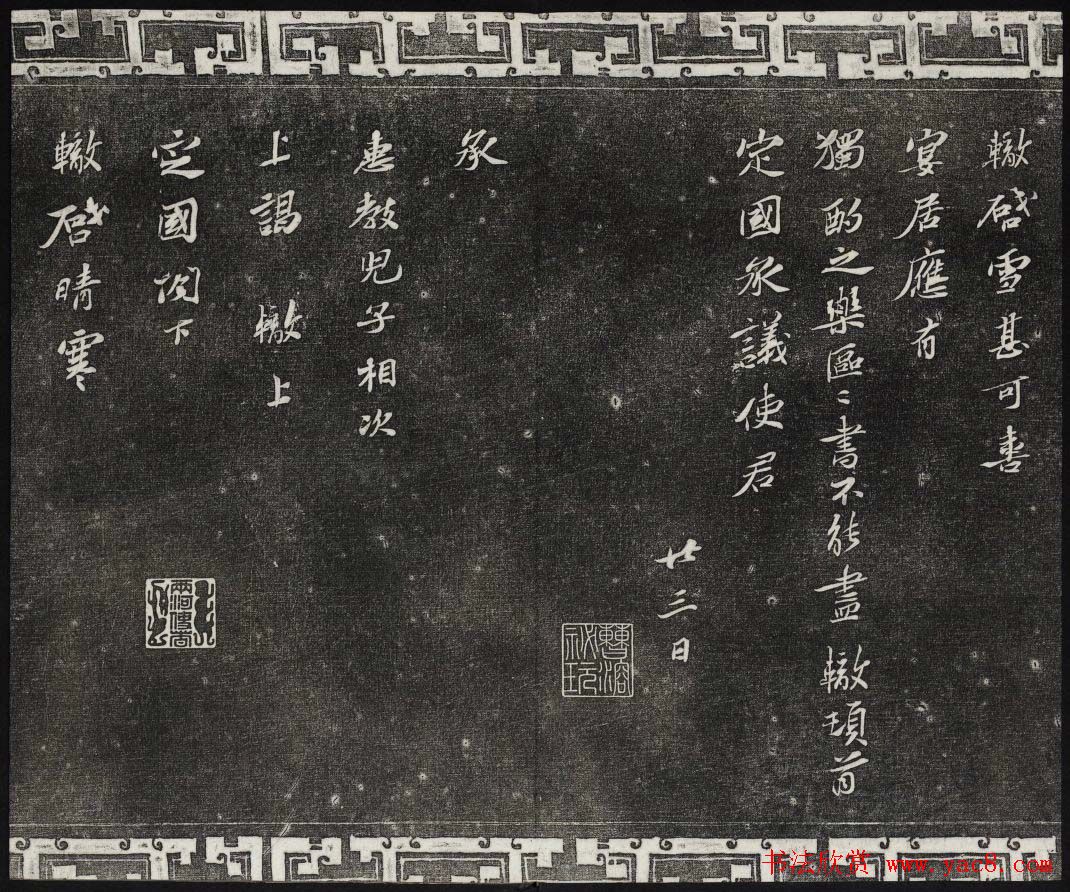 轍啓雪甚可喜
宴居應有
獨酌之樂區〻書不能盡 轍頓首
定國承議使君
廿三日
曹溶祕玩
承
惠教兒子相次
上謁 轍上
定國閣下
轍啓晴寒
书法欣赏 www.yac8.com